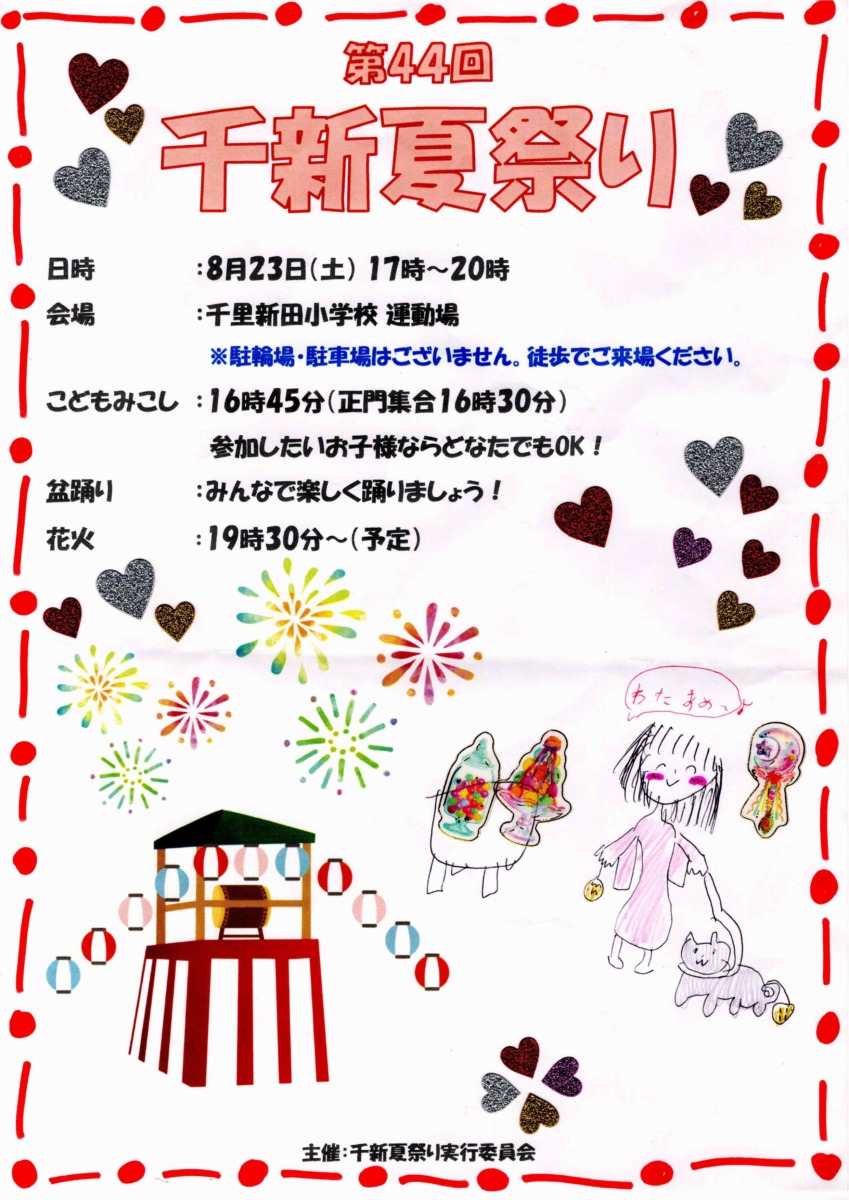 第44回
千新夏祭り
日時 :8月23日(土) 17時～20時
会場 :千里新田小学校 運動場
※駐輪場・駐車場はございません。徒歩でご来場ください。
こどもみこし :16時45分(正門集合16時30分)
参加したいお子様ならどなたでもOK！
盆踊り :みんなで楽しく踊りましょう！
花火 :19時30分～(予定)
わたまめ～♪
主催:千新夏祭り実行委員会